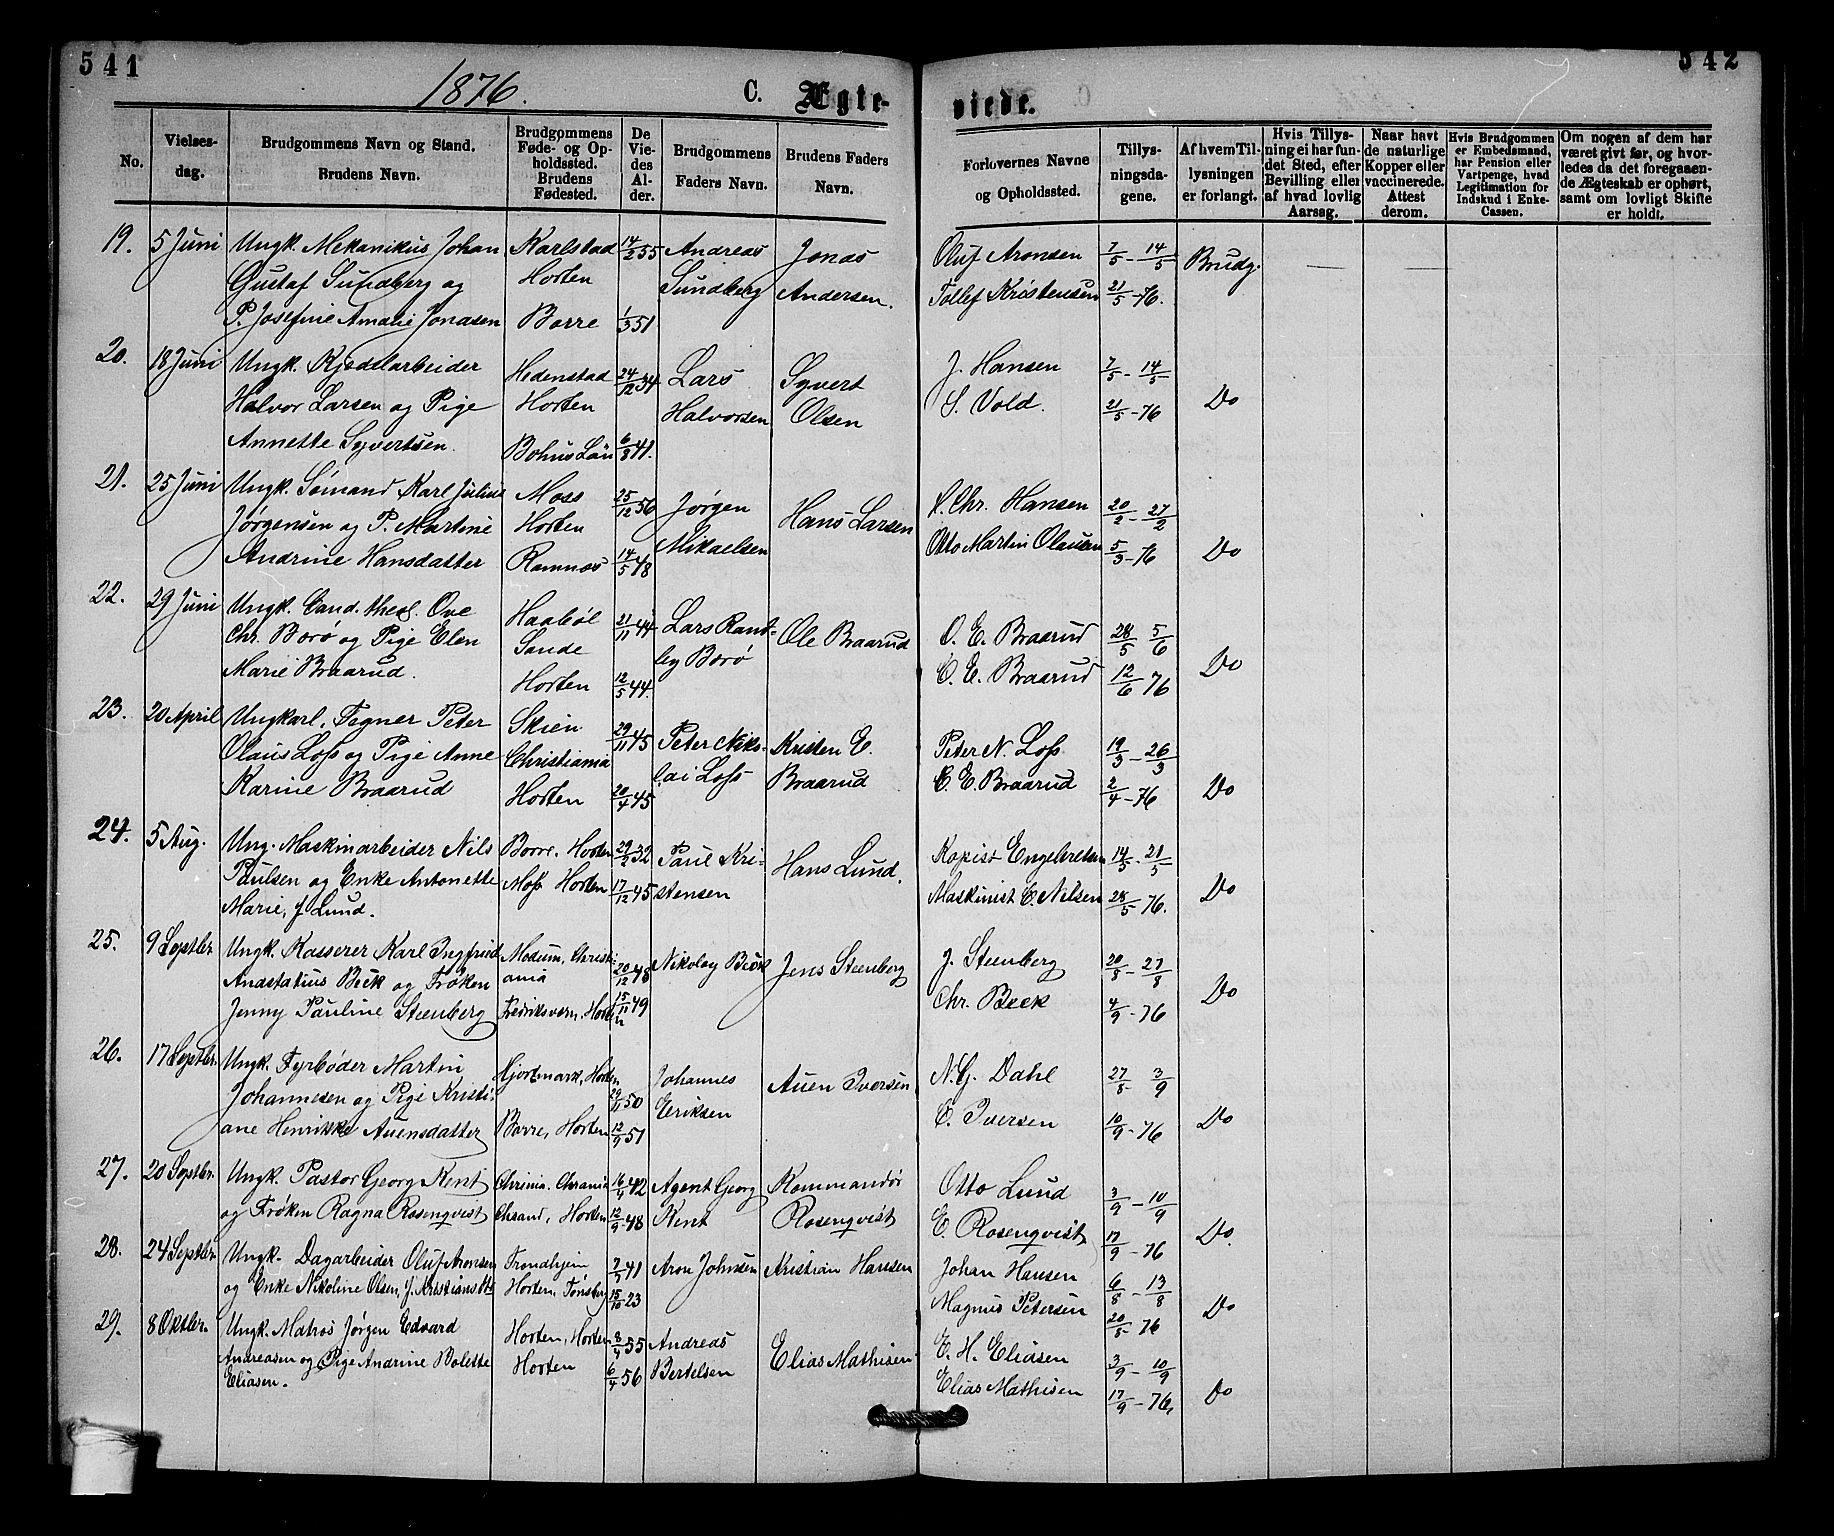 541
542
1876.
C. Ægte-
viede.
No.
Vielses-
dag.
Brudgommens Navn og Stand.
Brudens Navn.
Brudgommens
Føde- og Op-
holdssted.
Brudens
Fødested.
De
Vie-
des
Al-
der.
Brudgommens
Faders Navn.
Brudens Faders
Navn.
Forlovernes Navne
og Opholdssted.
Tillys-
ningsda-
gene.
Af hvem Til-
lysningen
er forlangt.
Hvis Tillys-
ning ei har fun-
det Sted, efter
Bevilling eller
af hvad lovlig
Aarsag.
Naar havt
de naturlige
Kopper eller
vaccinerede.
Attest
derom.
Hvis Brudgommen
er Embedsmand,
har Pension eller
Vartpenge, hvad
Legitimation for
Indskud i Enke-
Cassen.
Om nogen af dem har
været givt før, og hvor-
ledes da det foregaaen-
de Ægteskab er ophørt,
samt om lovligt Skifte
er holdt.
19. 5 Juni Ungk. Mekanikus Johan Karlstad 14/2 55 Andreas Jonas Oluf Aronsen 7/5 - 14/5 Brudg. — —
Gustaf Sundberg og Horten Sundberg Andersen. Tollef Kristensen 21/5 - 76.
P. Josefine Amalie Jonasen Borre 1/3 51
20. 18 Juni Ungk. Kjedelarbeider Hedenstad 24/12 34 Lars Syvert J. Hansen 7/5 - 14/5
Halvor Larsen og Pige Horten Halvorsen Olsen S. Vold. 21/5 - 76 Do
Annette Syvertsen. Bohus Län 6/8 41.
21. 25 Juni Ungk. Sömand Karl Julius Moss 25/12 56 Jørgen Hans Larsen Chr. Hansen 20/2 - 27/2
Jørgensen og P. Martine Horten Mikaelsen Otto Martin Olausen 5/3 - 76 Do
Andrine Hansdatter Ramnæs 14/5 48
22. 29 Juni Ungk. Cand. theol. Ove Haabøl 21/11 44 Lars Rant- Ole Braarud O. E. Braarud 28/5 5/6
Chr. Borø og Pige Elen Sande ley Borø C. E. Braarud 12/6 76 Do
Marie Braarud. Horten 12/5 44.
23. 20 April Ungkarl, Tegner Peter Skien 29/11 45 Peter Niko- Kristen E. Peter N. Loss 19/3 - 26/3
Olaus Loss og Pige Anne Christiania lai Loss Braarud C. E. Braarud 2/4 - 76 Do
Karine Braarud Horten 20/4 45
24. 5 Aug. Ung. Maskinarbeider Nils Borre, Horten 29/2 32 Paul Kri- Hans Lund. Kopist Engebretsen 14/5 - 21/5
Paulsen og Enke Antonette Moss Horten 17/12 45 stensen Maskinist C. Nilsen 28/5 - 76. Do
Marie, f. Lund.
25. 9 Septbr. Ungk. Kasserer Karl Ingfried Modum, Christi- 20/12 48 Nikolay Beck Jens Steenberg J. Steenberg 20/8 - 27/8
Anastatius Beck og Frøken ania Chr. Beck 4/9 - 76 Do
Jenny Pauline Steenberg Fredriksværn, Horten 15/11 49
26. 17 Septbr. Ungk. Fyrbøder Martin Hjortmark, Horten 29/11 50 Johannes Auen Iversen N. G. Dahl 27/8 3/9
Johannesen og Pige Kristi- Eriksen C. Iversen 10/9 - 76 Do
ane Henrikke Auensdatter Borre, Horten 12/9 51
27. 20 Septbr. Ungk. Pastor Georg Kent Chrania 42 Agent Georg Kommandør Otto Lund 3/9 - 10/9
og Frøken Ragna Rosenqvist Chrsand, Horten 12/9 48 Kent Rosenqvist E. Rosenqvist 17/9 - 76 Do.
28. 24 Septbr. Ungk. Dagarbeider Oluf Aronsen Trondhjem 41 Aron Johnsen Kristian Hansen Johan Hansen 6/8 - 13/8
og Enke Nikoline Olsen, f. Kristiansdtr Horten, Tønsberg 15/10 23 Magnus Petersen 20/8 - 76 Do
29. 8 Oktbr. Ungk. Matros Jørgen Edvard Horten, Horten 55 Andreas Elias Mathisen E. H. Eliasen 3/9 - 10/9
Andreasen og Pige Andrine Bolette Horten 6/4 56 Bertelsen Elias Mathisen 17/9 - 76, Do
Eliasen.